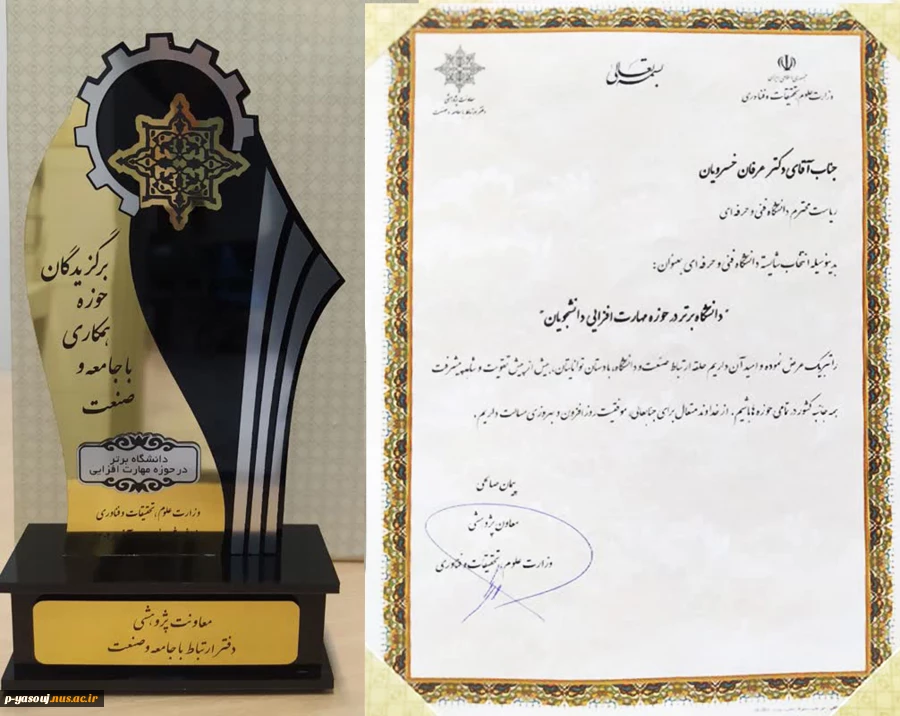 برگزیدگان
حوزه
همکاری
با جامعه و
صنعت
دانشگاه برتر
در حوزه مهارت افزایی
وزارت علوم، تحقیقات و فناوری
معاونت پژوهشی
دفتر ارتباط با جامعه و صنعت
p-yasouj.nus.ac.ir
بسمه تعالی
جمهوری اسلامی ایران
وزارت علوم، تحقیقات و فناوری
معاونت پژوهشی
دفتر ارتباط با جامعه و صنعت
جناب آقای دکتر عرفان خسرویان
ریاست محترم دانشگاه فنی و حرفه ای
بدینوسیله انتخاب شایسته دانشگاه فنی و حرفه ای بعنوان:
"دانشگاه برتر در حوزه مهارت افزایی دانشجویان"
را تبریک عرض نموده و امید آن داریم حلقه ارتباط صنعت و دانشگاه، با دستان توانایتان، بیش از پیش تقویت و شاهد پیشرفت
همه جانبه کشور در تمامی حوزه ها باشیم. از خداوند متعال برای جنابعالی، موفقیت روز افزون و بهروزی مسالت داریم.
پیمان صالحی
معاون پژوهشی
وزارت علوم، تحقیقات و فناوری